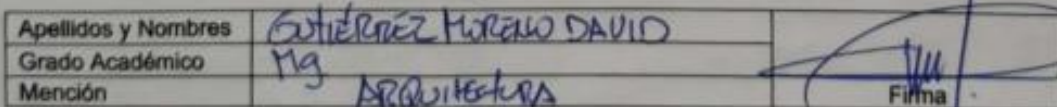 Apellidos y Nombres GUTIÉRREZ MORENO DAVID
Grado Académico Mg
Mención ARQUITECTURA
Firma